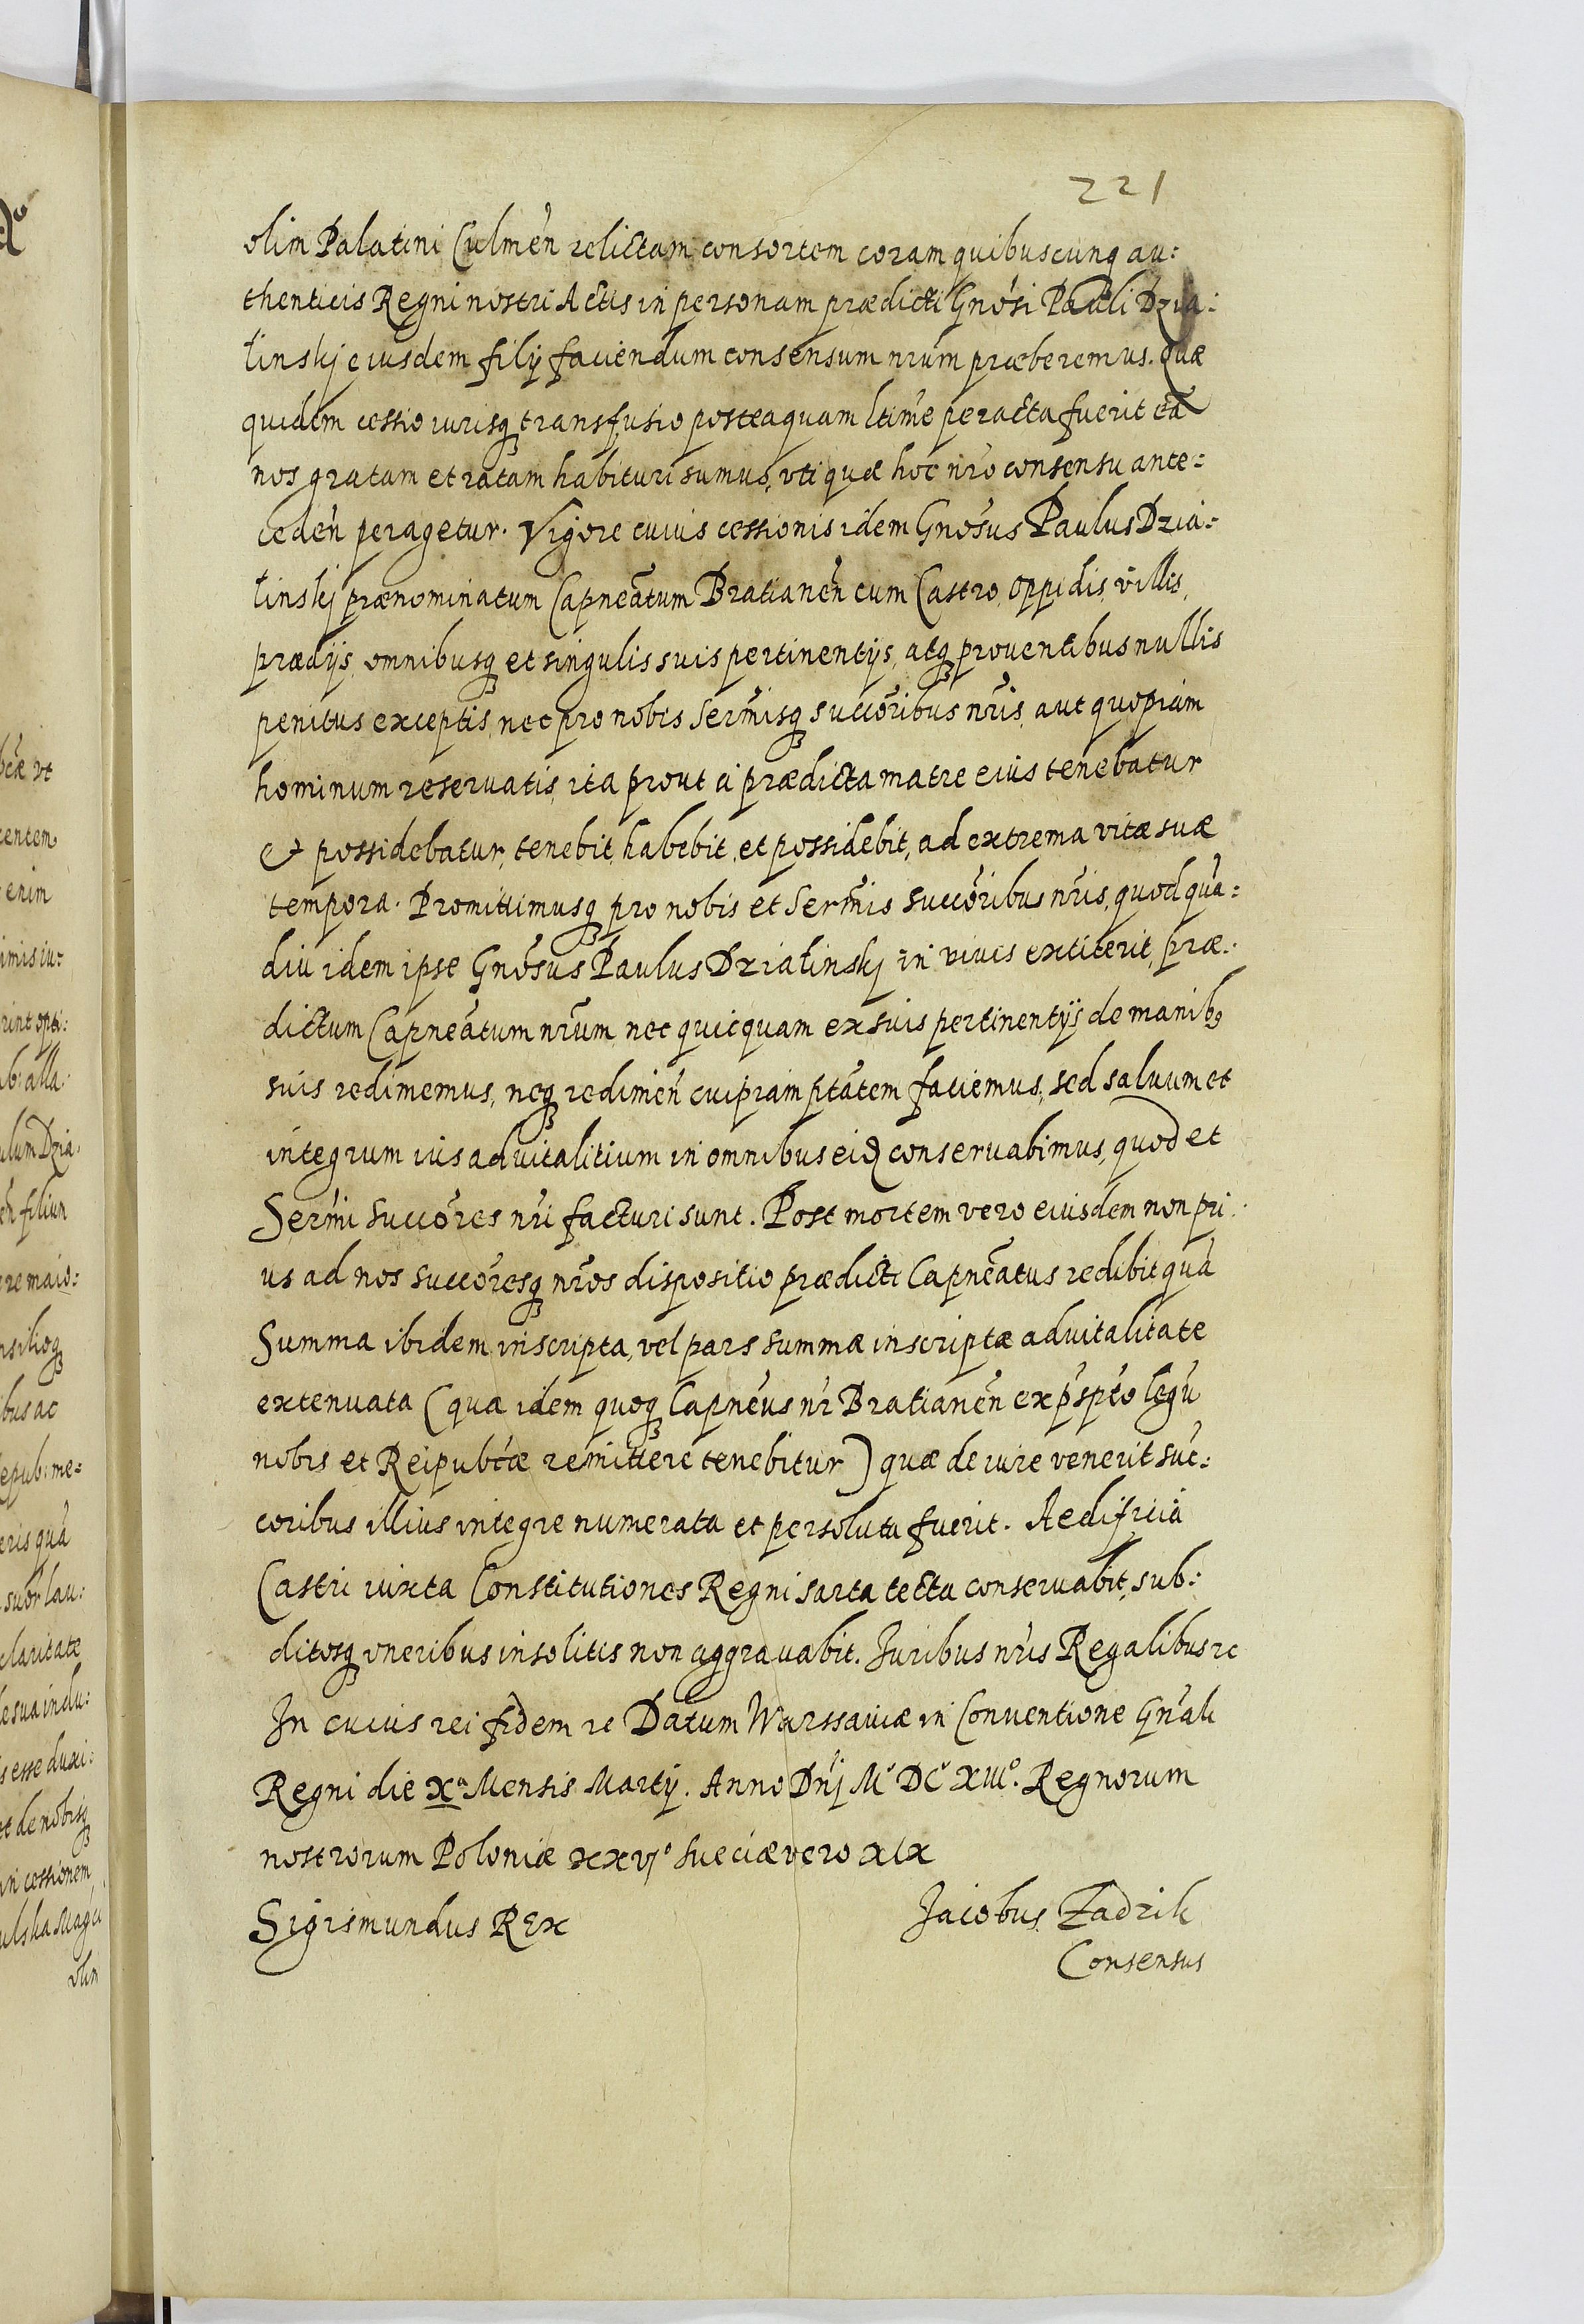 221
olim Palatini Culmeñ relictam consortem coram quibuscunq au:
thenticis Regni nostri Actis in personam prædicti Gnosi Pauli Dzia:
łinskj eiusdem filij faciendum consensum nrum præberemus. Quæ
quidem cessio iurisq transfusio posteaquam ltime peracta fuerit eā
nos gratam et ratam habituri sumus, uti quæ hoc nro consensu ante:
cedeñ peragetur. Vigore cuius cessionis idem Gnosus Paulus Dzia:
łinskj prænominatum Capneatum Bratianeñ cum Castro, oppidis, villis,
prædijs, omnibusq et singulis suis pertinentijs, atq prouentibus nullis
penitus exceptis, nec pro nobis Sermisq succoribus nris, aut quopiam
hominum reseruatis, ita prout à prædicta matre eius tenebatur
et possidebatur, tenebit, habebit, et possidebit, ad extrema vitæ suæ
tempora. Promittimusq pro nobis et Sermis Succoribus nris, quod qua:
diu idem ipse Gnosus Paulus Działinskj in vivis extiterit, præ:
dictum Capneatum nrum nec quicquam ex suis pertinentijs de manib9
suis redimemus, neq redimeñ cuipiam ptatem faciemus, sed saluum et
integrum ius aduitalitium in omnibus eid conseruabimus, quod et
Sermi Succores nri facturi sunt. Post mortem vero eiusdem non pri:
us ad nos succoresq nros dispositio prædicti Capneatus redibit quā
Summa ibidem inscripta, vel pars summæ inscriptæ aduitalitate
extenuata (qua idem quoq Capneus nr Bratianeñ ex pspto legū
nobis et Reipubcæ remittere tenebitur) quæ de iure venerit suc:
coribus illius integre numerata et persoluta fuerit. Aedificia
Castri iuxta Constitutiones Regni sarta tecta conseruabit, sub:
ditosq oneribus insolitis non aggrauabit. Juribus nris Regalibus rc
In cuius rei fidem rc Datum Warssauiæ in Conuentione Gnali
Regni die Xa Mensis Martij. Anno Dnj Mº DCº XIIIº. Regnorum
nostrorum Poloniæ xxvjº Sueciæ vero xix
Sigismundus REx
Jacobus Zadzik
Consensus